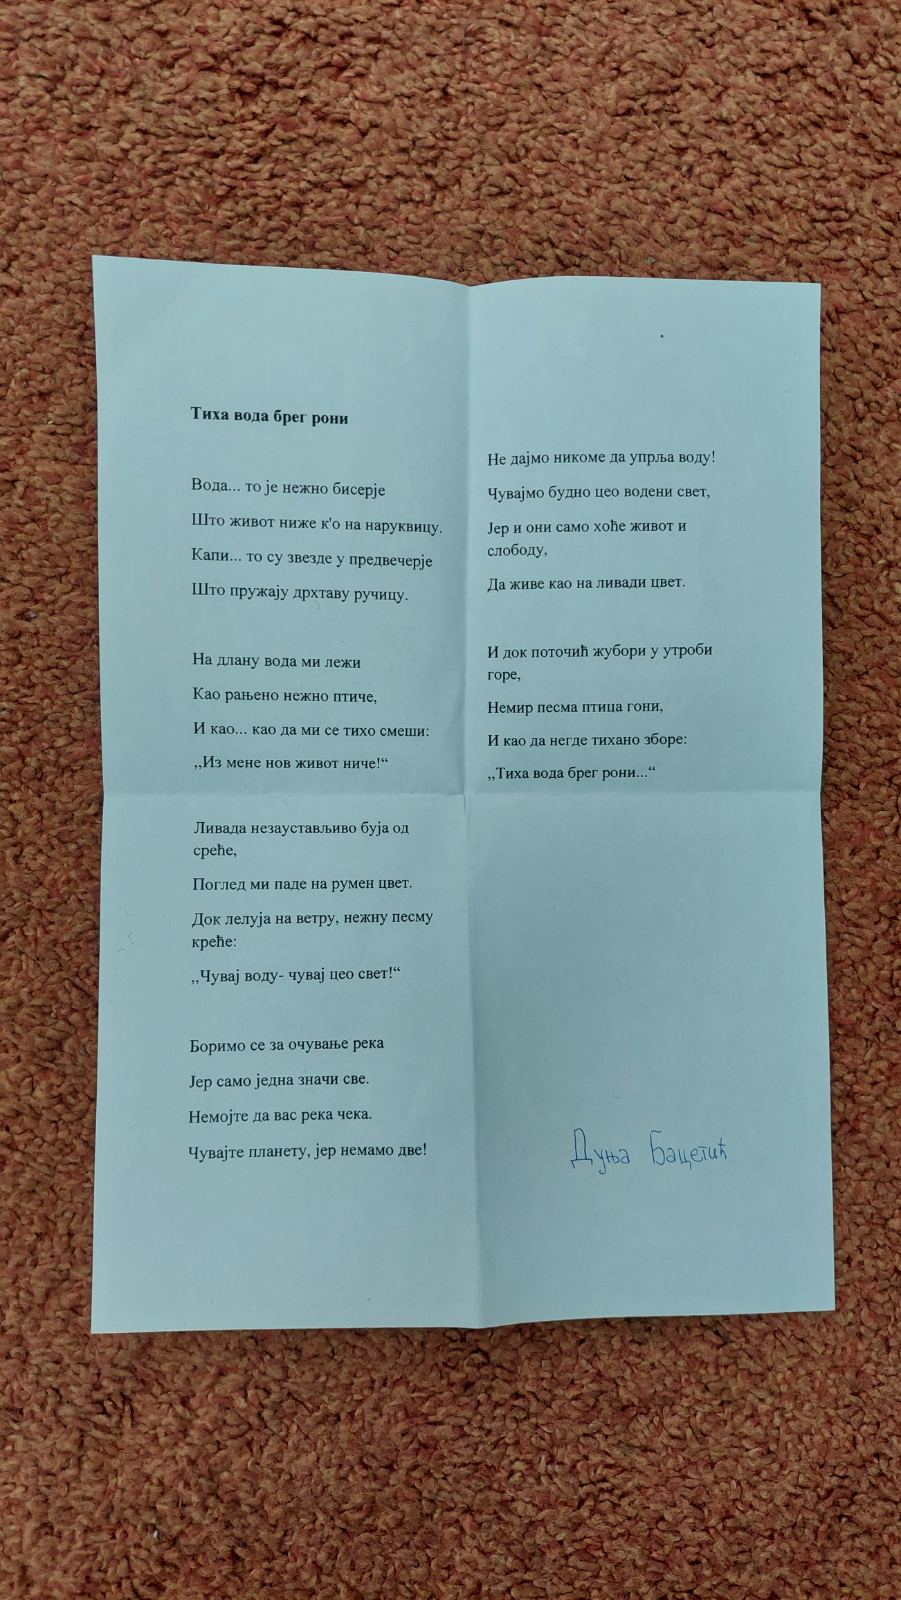 Тиха вода брег рони
Вода... то је нежно бисерје
Што живот ниже к'о на наруквицу.
Капи... то су звезде у предвечерје
Што пружају дрхтаву ручицу.
На длану вода ми лежи
Као рањено нежно птиче,
И као... као да ми се тихо смеши:
,,Из мене нов живот ниче!“
Ливада незаустављиво буја од
среће,
Поглед ми паде на румен цвет.
Док лелуја на ветру, нежну песму
креће:
,,Чувај воду- чувај цео свет!“
Боримо се за очување река
Јер само једна значи све.
Немојте да вас река чека.
Чувајте планету, јер немамо две!
Не дајмо никоме да упрља воду!
Чувајмо будно цео водени свет,
Јер и они само хоће живот и
слободу,
Да живе као на ливади цвет.
И док поточић жубори у утроби
горе,
Немир песма птица гони,
И као да негде тихано зборе:
,,Тиха вода брег рони...“
Дуња Бацетић